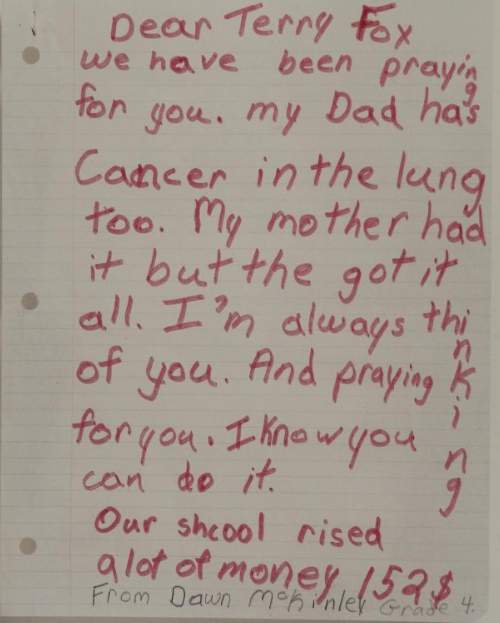 Dear Terry Fox
we have been praying
for you. my Dad has
Cancer in the lung
too. My mother had
it but the got it
all. I'm always thinking
of you. And praying
for you. I know you
can do it.
Our shcool rised
a lot of money 152$
From Dawn McKinley Grade 4.